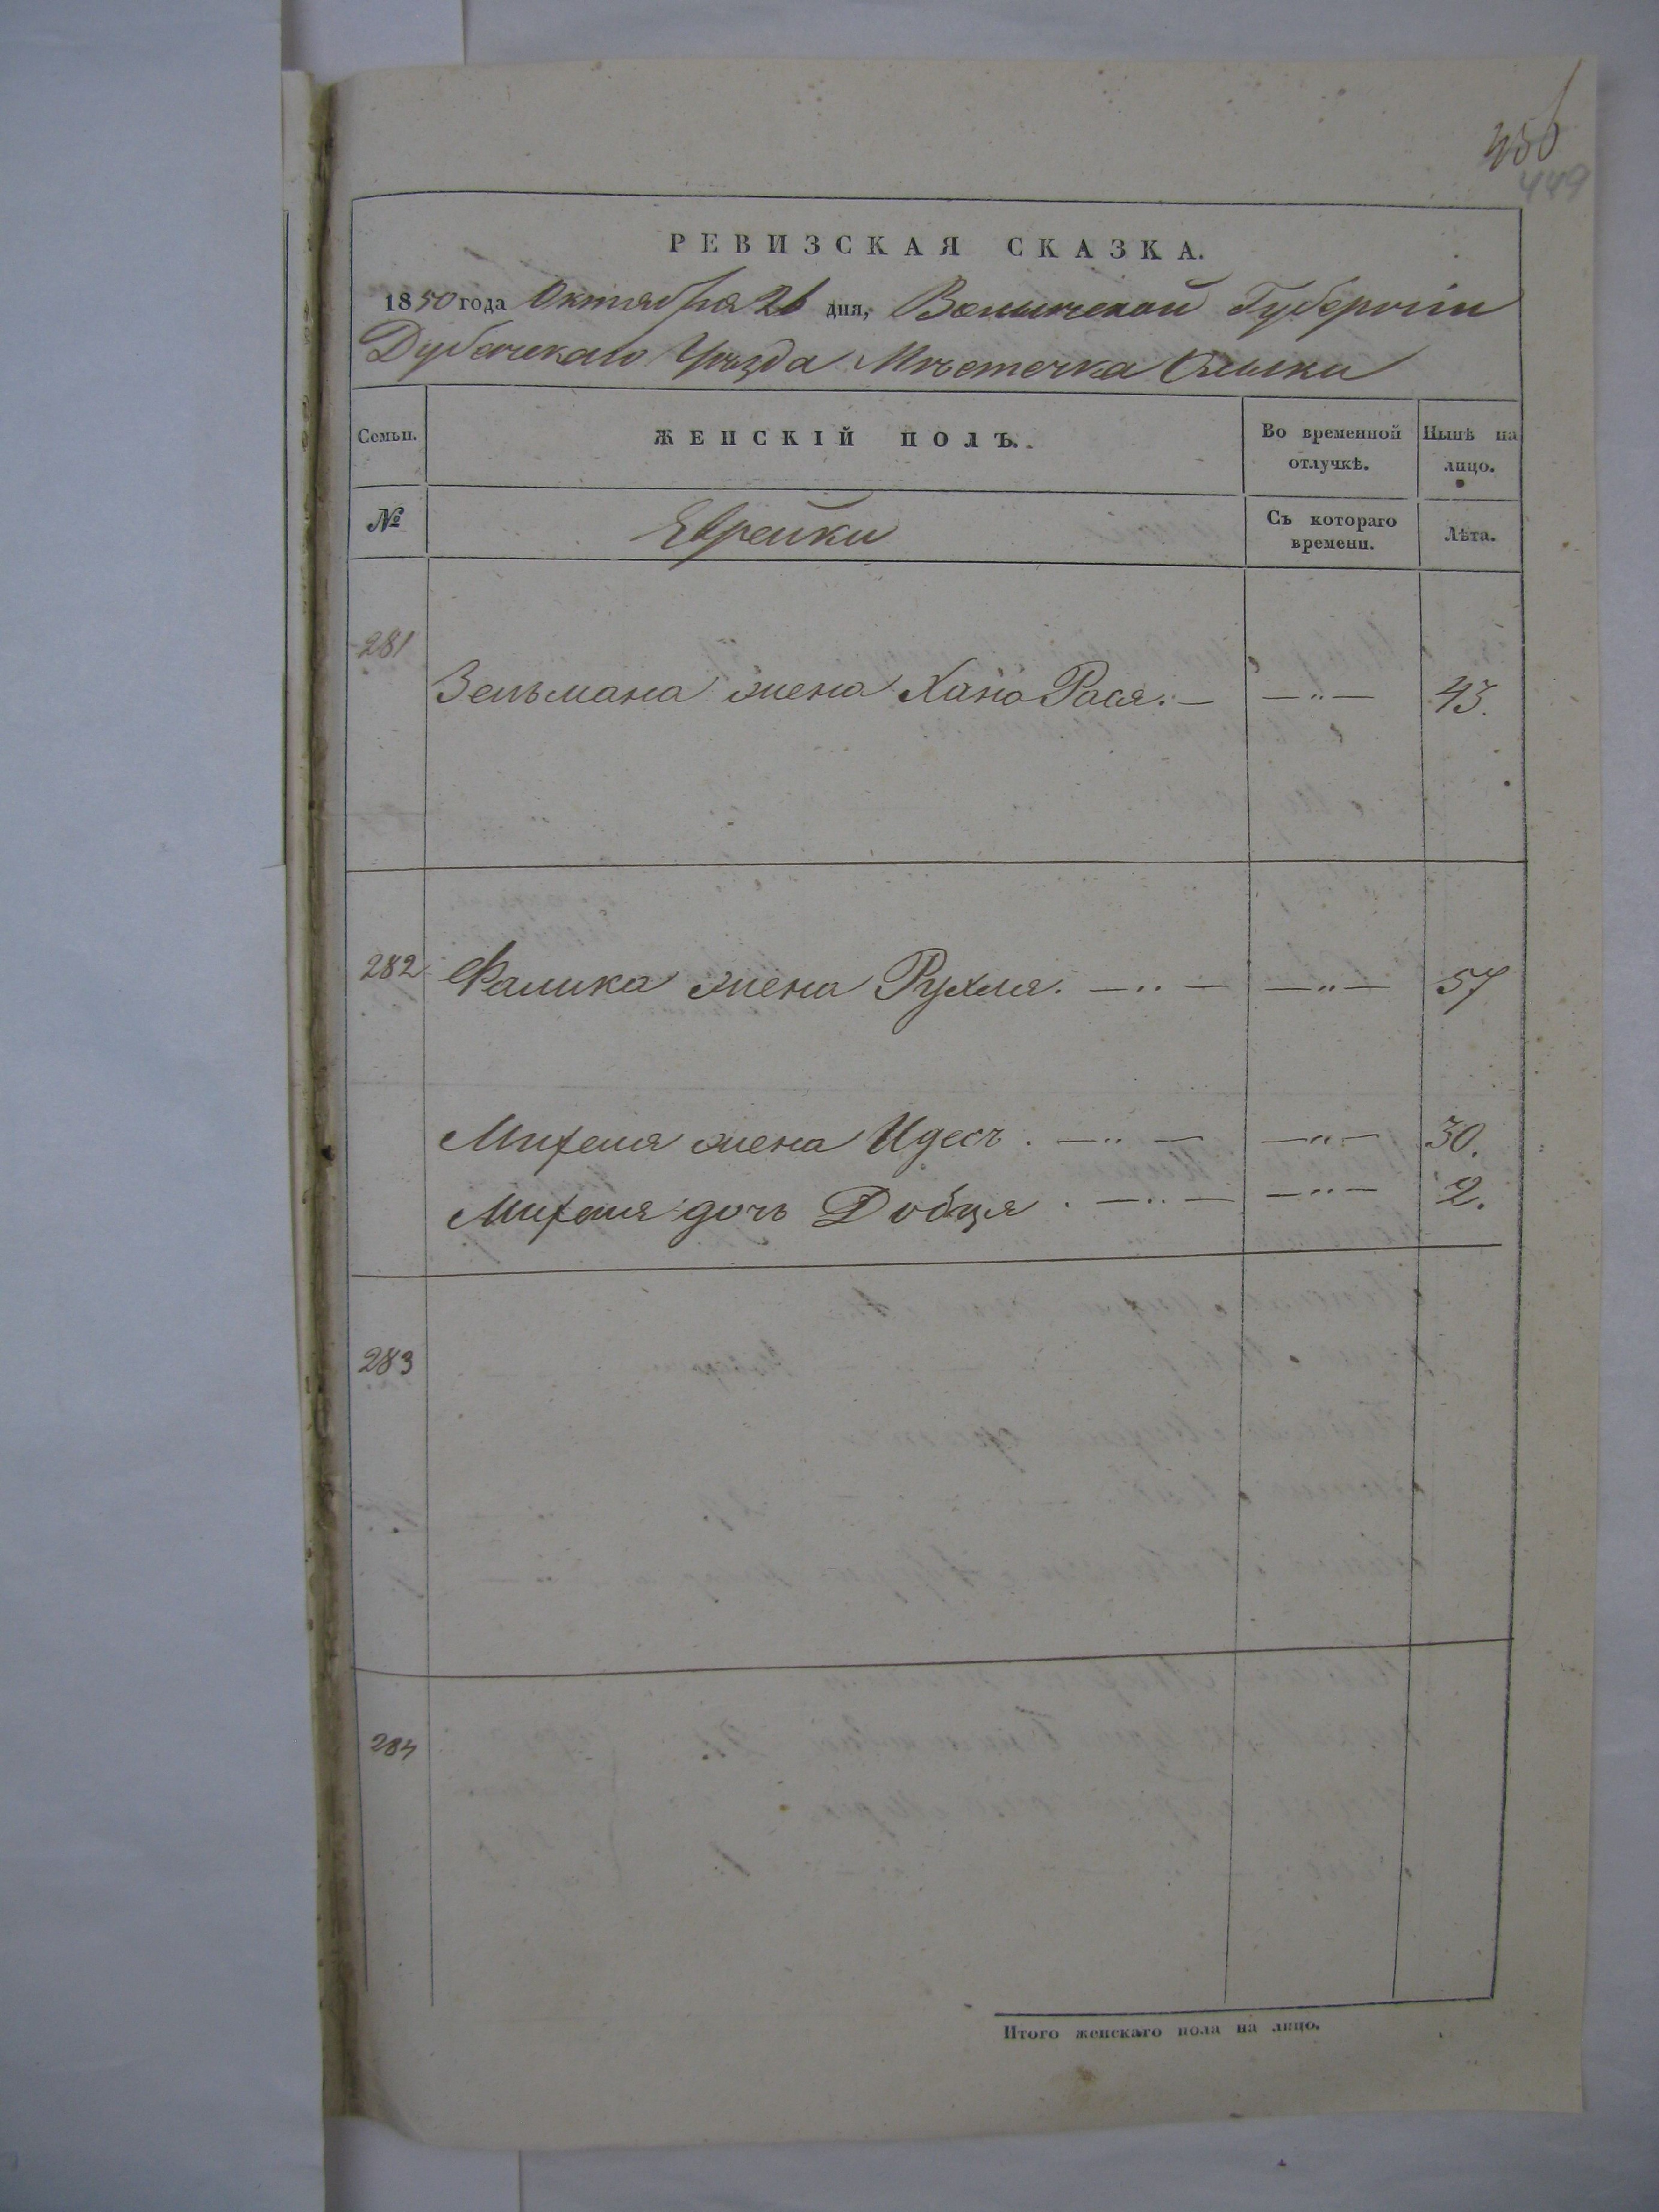 456
449
РЕВИЗСКАЯ СКАЗКА.
1850 года Октября 26 дня, Волынской Губерніи
Дубенскаго Уѣзда Мѣстечка Олыки
Семьи. ЖЕНСКІЙ ПОЛЪ. Во временной отлучкѣ. Нынѣ на лицо.
№ Еврейки Съ котораго времени. Лѣта.
281
Зельмана жена Хана Рася. — — „ — 43.
282 Фалика жена Рухля. — „ — — „ — 57
Михеля жена Идесъ. — „ — — „ — 30.
Михеля дочь Добця. — „ — — „ — 2.
283
284
Итого женскаго пола на лицо.